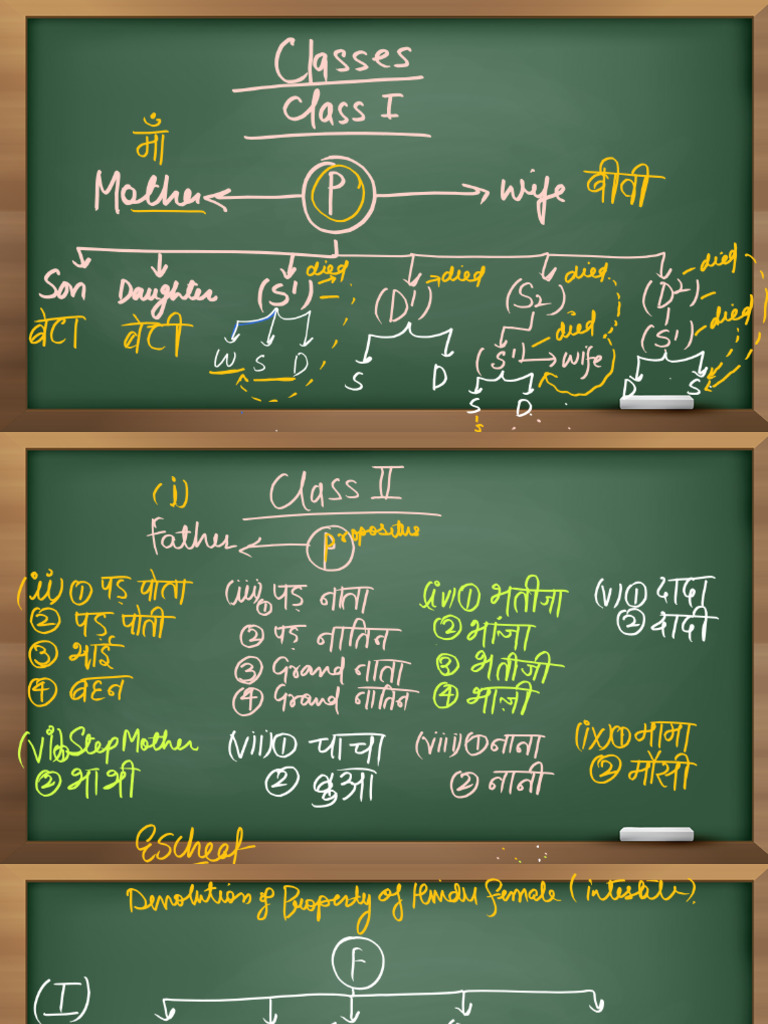 Classes
Class I
माँ
Mother ← P → wife बीवी
Son Daughter (S¹) died (D¹) died (S₂) died (D²) died
बेटा बेटी
W S D
S D
(S¹) died → wife
S D
(S¹) died
D S
's
Class II
(i)
Father ← P propositus
(ii) ① पड़ पोता
② पड़ पोती
③ भाई
④ बहन
(iii) ① पड़ नाता
② पड़ नातिन
③ Grand नाता
④ Grand नातिन
(iv) ① भतीजा
② भांजा
③ भतीजी
④ भाज़ी
(v) ① दादा
② दादी
(vi) ① Step Mother
② भाभी
(vii) ① चाचा
② बुआ
(viii) ① नाना
② नानी
(ix) ① मामा
② मौसी
Escheat
Devolution of Property of Hindu female (intestate).
F
(I)